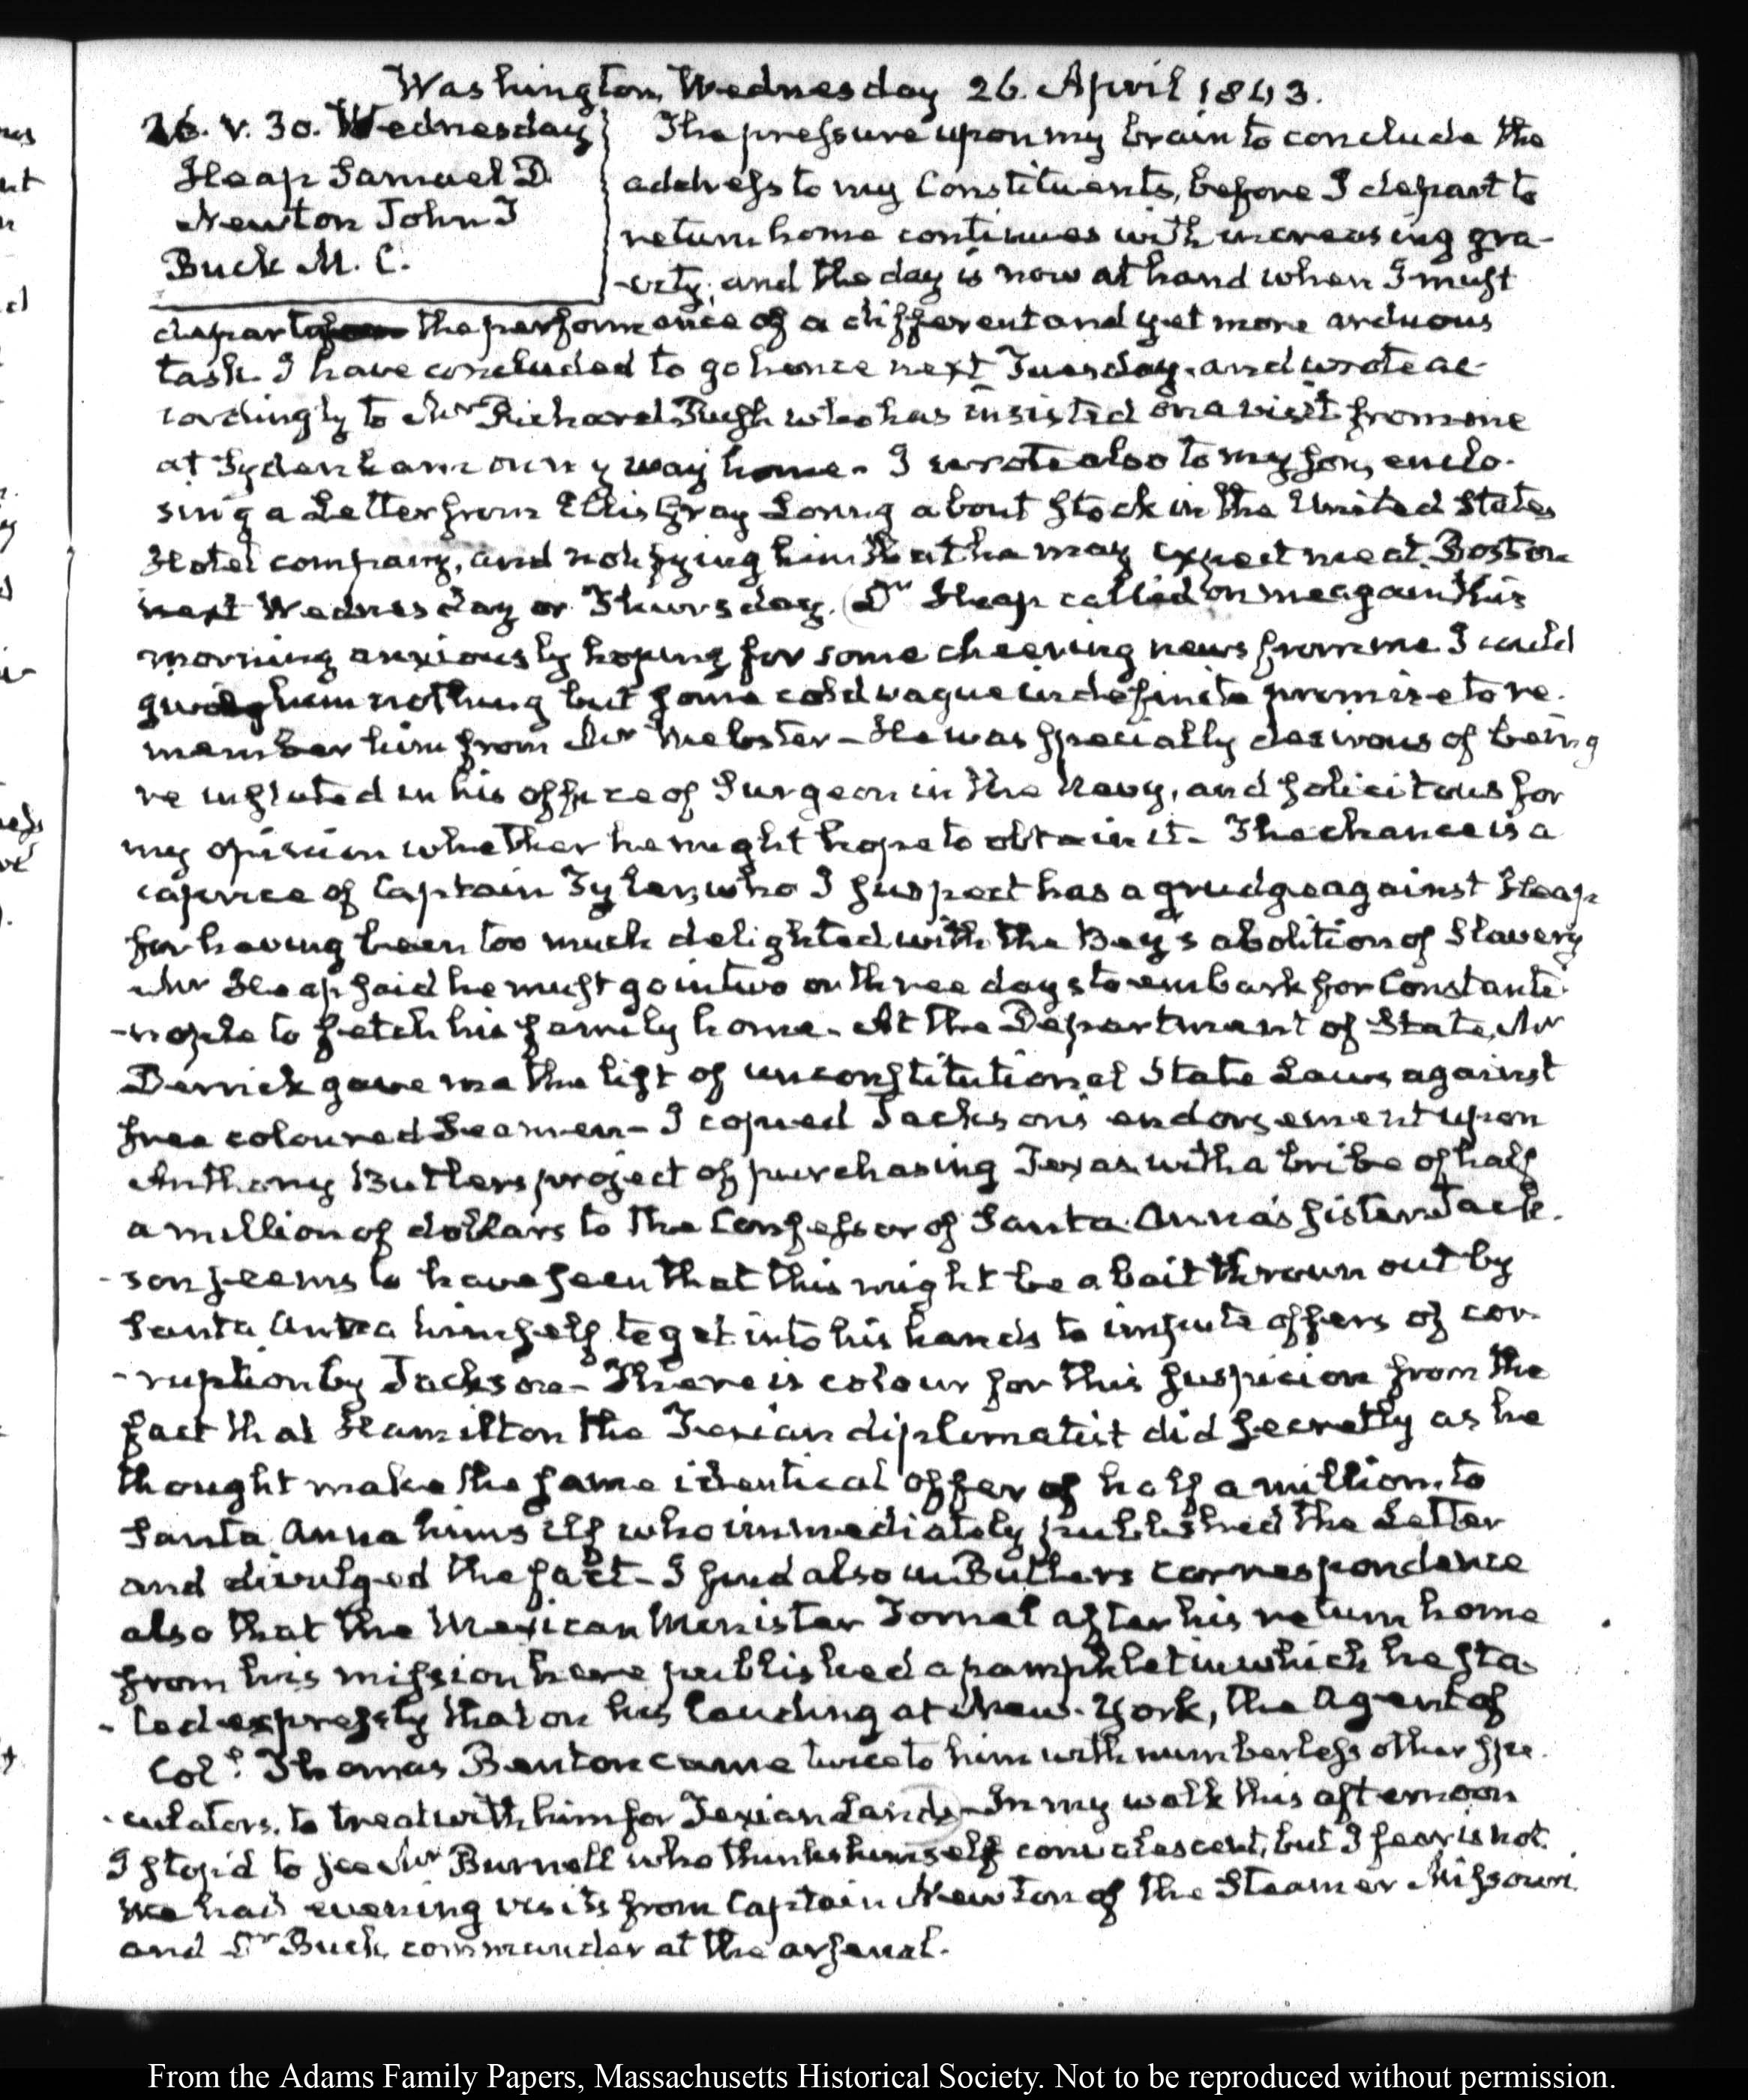 Washington, Wednesday 26. April 1843.
26. V. 30. Wednesday
Heap Samuel D
Newton John T
Buck M. C.
The pressure upon my brain to conclude the
address to my Constituents, before I depart to
return home continues with increasing gra-
-vity; and the day is now at hand when I must
depart the performance of a different and yet more arduous
task. I have concluded to go hence next Tuesday, and wrote ac-
cordingly to Mr Richard Rush who has insisted on a visit from me
at Sydenham on my way home. I wrote also to my Son, enclo-
sing a Letter from Ellis Gray Loring about Stock in the United States
Hotel company, and notifying him that he may expect me at Boston
next Wednesday or Thursday. Dr Heap called on me again this
morning anxiously hoping for some cheering news from me. I could
give him nothing but some cold vague indefinite promise to re-
member him from Mr Webster – He was specially desirous of being
re instated in his office of Surgeon in the Navy, and solicitous for
my opinion whether he might hope to obtain it – The chance is a
caprice of Captain Tyler, who I suspect has a grudge against Heap
for having been too much delighted with the Bey's abolition of Slavery
Mr Heap said he must go in two or three days to embark for Constanti-
-nople to fetch his family home. At the Department of State, Mr
Derrick gave me the list of unconstitutional State Laws against
free coloured Seamen – I copied Jackson's endorsement upon
Anthony Butlers project of purchasing Texas with a bribe of half
a million of dollars to the Confessor of Santa Anna's sister. Jack-
-son seems to have seen that this might be a bait thrown out by
Santa Anna himself to get into his hands to impute offers of cor-
-ruption by Jackson – There is colour for this suspicion from the
fact that Hamilton the Texian diplomatist did secretly as he
thought make the same identical offer of half a million, to
Santa Anna himself who immediately published the Letter
and divulged the fact – I find also in Butlers correspondence
also that the Mexican Minister Tornel after his return home
from his mission here published a pamphlet in which he sta-
-ted expressly that on his landing at New-York, the Agent of
Coll. Thomas Benton came twice to him with numberless other spe-
-culators, to treat with him for Texian Lands – In my walk this afternoon
I stop'd to see Mr Burnell who thinks himself convalescent, but I fear is not.
We had evening visits from Captain Newton of the Steamer Missouri
and Dr Buck commander at the arsenal.
From the Adams Family Papers, Massachusetts Historical Society. Not to be reproduced without permission.